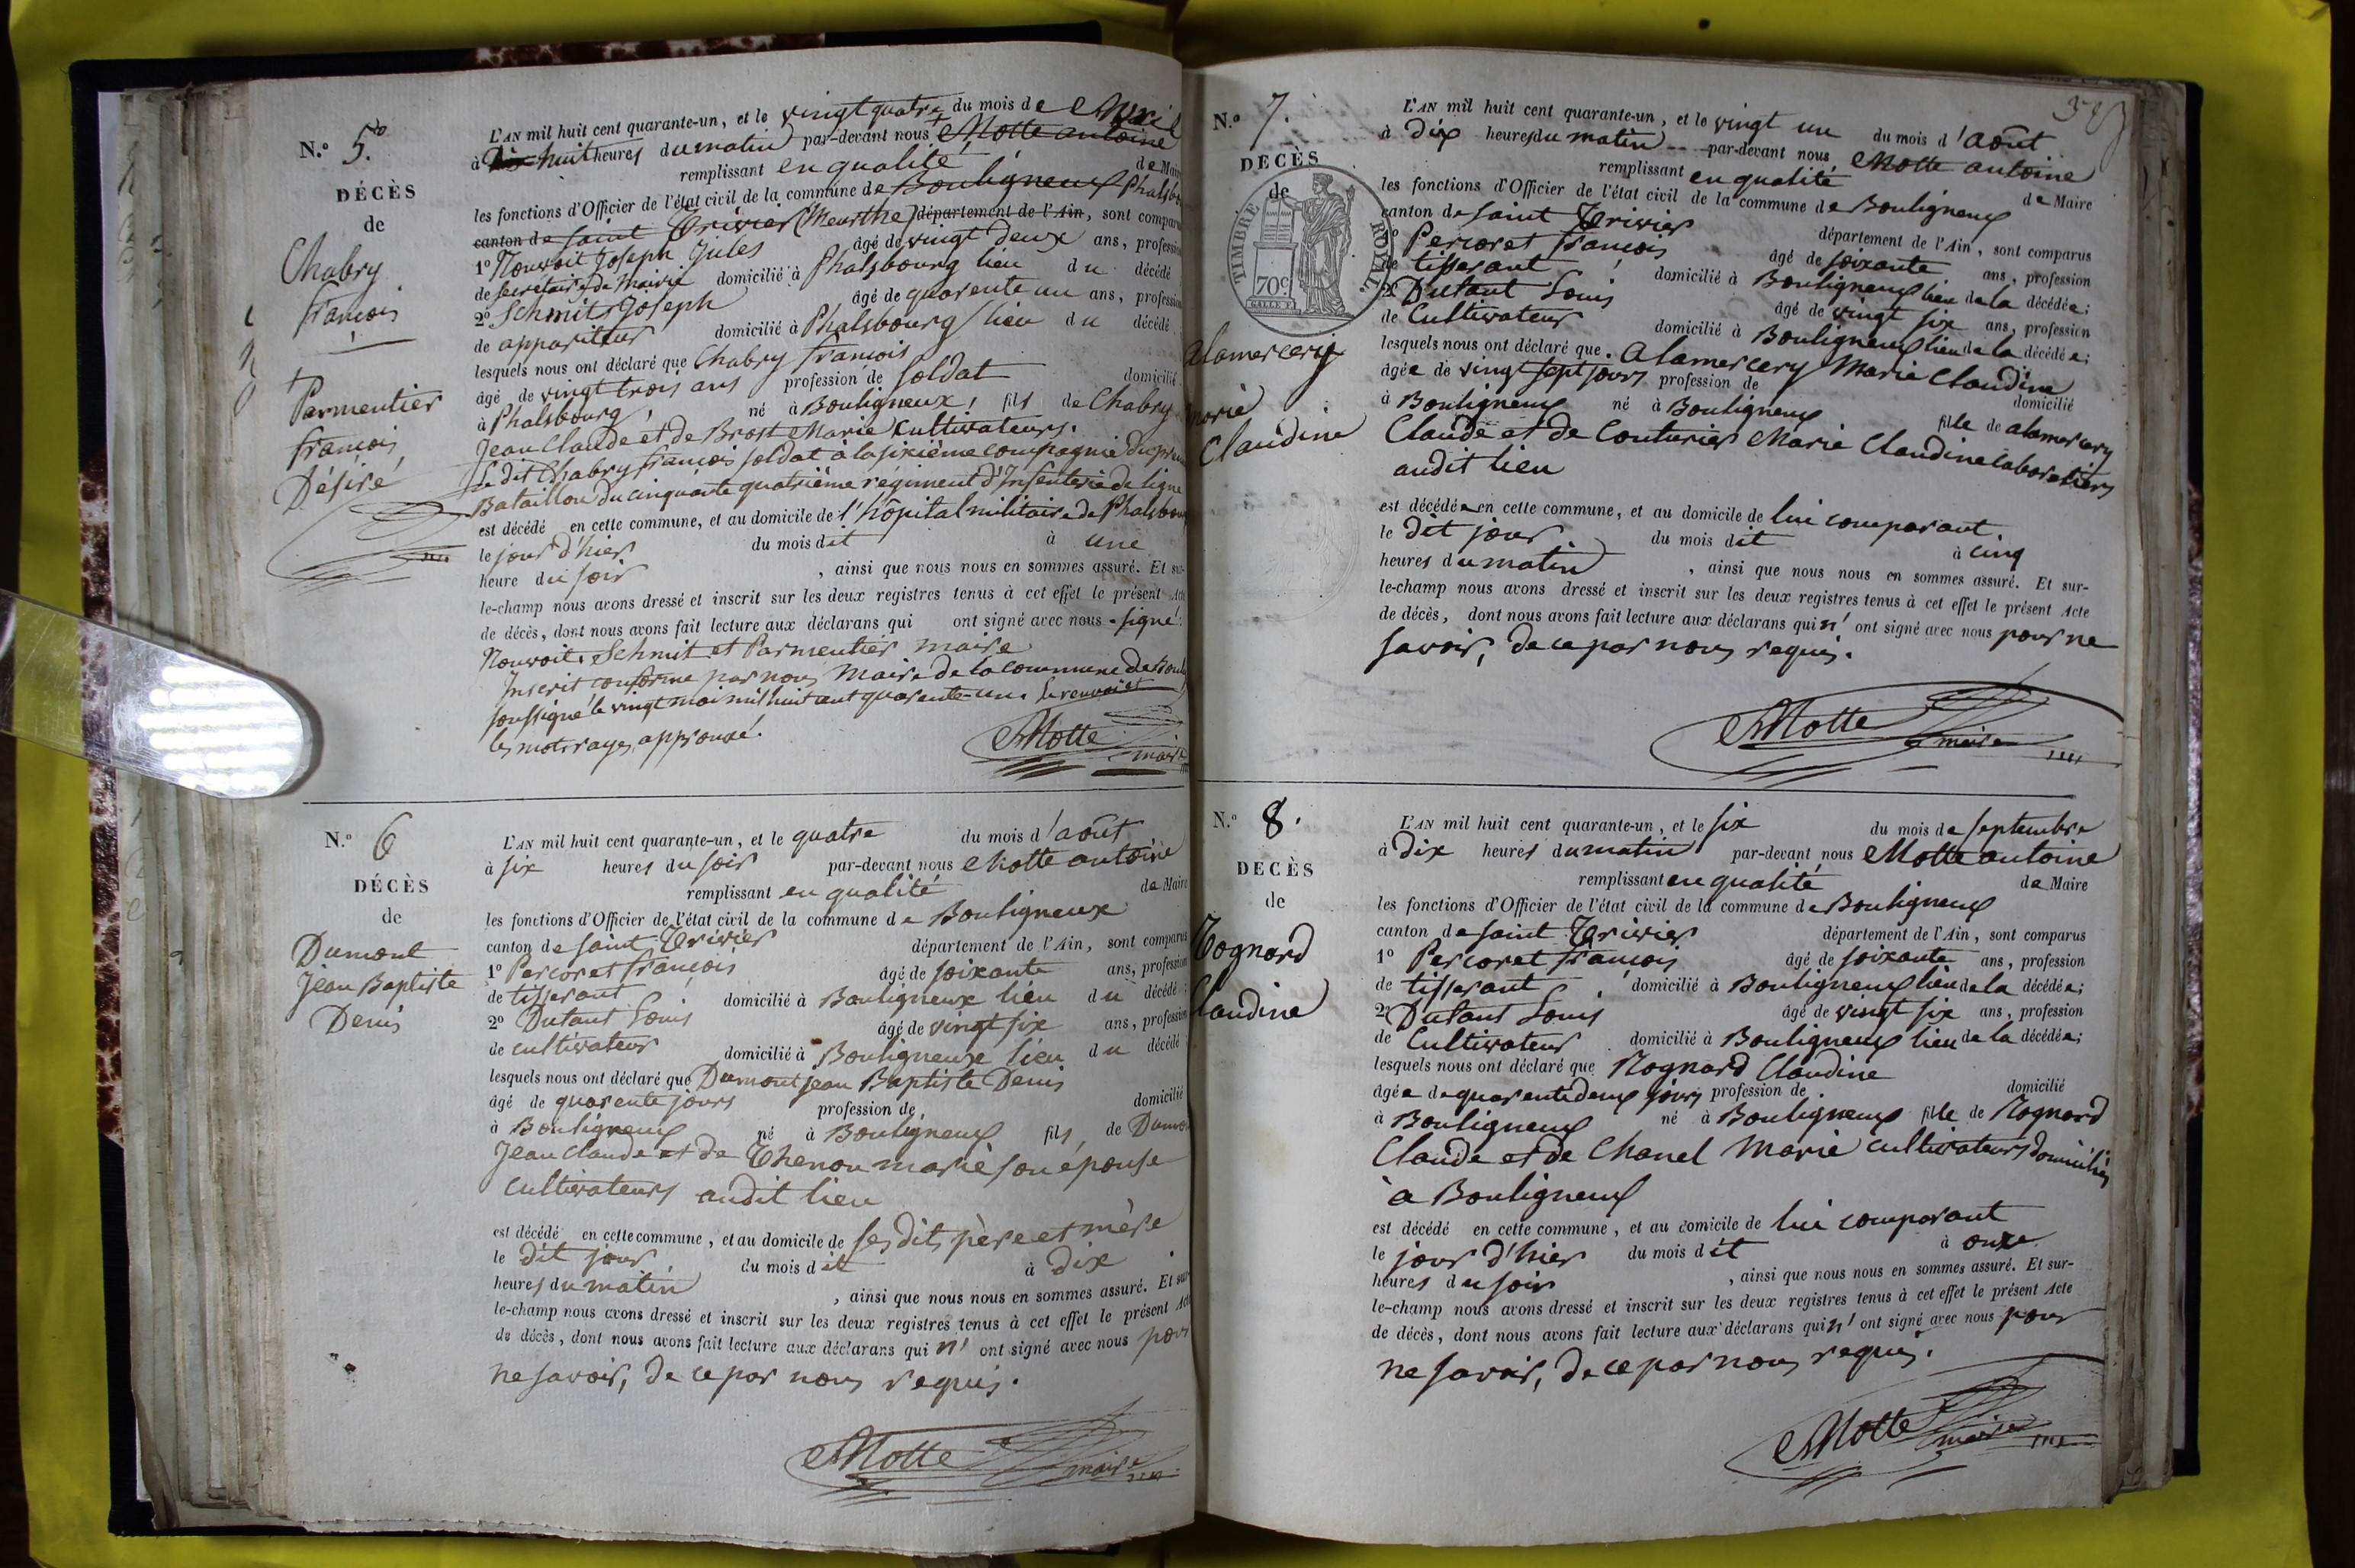 N.º 5.
DÉCÈS
de
Chabry
françois
+
Parmentier
françois
Désiré
L'AN mil huit cent quarante-un, et le vingt quatre du mois de Avril
à huit heures du matin par-devant nous + Motte antoine
remplissant en qualité de Maire
les fonctions d'Officier de l'état civil de la commune de Bouligneux Phalsbo
canton de saint Trivier (Meurthe) département de l'Ain, sont compar
1º Nouvoit Joseph Jules âgé de vingt deux ans, profession
de secretaire de Mairie domicilié à Phalsbourg lieu du décédé
2º Schmit Joseph âgé de quarente un ans, profession
de appariteur domicilié à Phalsbourg lieu du décédé
lesquels nous ont déclaré que Chabry françois
âgé de vingt trois ans profession de soldat domicilié
à Phalsbourg, né à Bouligneux, fils de Chabry
Jean Claude et de Brost Marie cultivateurs.
Le dit Chabry françois soldat à la sixième compagnie du pr
Bataillon du cinquante quatrième régiment d'Infenterie de ligne
est décédé en cette commune, et au domicile de l'hôpital militaire de Phalsbou
le jour d'hier du mois dit à une
heure du soir , ainsi que nous nous en sommes assuré. Et sur-
le-champ nous avons dressé et inscrit sur les deux registres tenus à cet effet le présent Acte
de décès, dont nous avons fait lecture aux déclarans qui ont signé avec nous signé:
Nouvoit. Schmit et Parmentier maire
Inscrit conforme par nous Maire de la commune de Bouli
soussigné le vingt mai mil huit cent quarente-un. Le renvoi et
les mots rayés approuvé.
Motte maire
N.º 6
DÉCÈS
de
Dumont
Jean Baptiste
Denis
L'AN mil huit cent quarante-un, et le quatre du mois d'août
à six heures du soir par-devant nous Motte antoine
remplissant en qualité de Maire
les fonctions d'Officier de l'état civil de la commune de Bouligneux
canton de saint Trivier département de l'Ain, sont comparus
1º Percoret françois âgé de soixante ans, profession
de tisserant domicilié à Bouligneux lieu du décédé;
2º Dutant Louis âgé de vingt six ans, profession
de cultivateur domicilié à Bouligneux lieu du décédé
lesquels nous ont déclaré que Dumont jean Baptiste Denis
âgé de quarente jours profession de domicilié
à Bouligneux né à Bouligneux fils de Dumo
Jean claude et de Thenon marie son épouse
cultivateurs audit lieu
est décédé en cette commune, et au domicile de ses dits père et mère
le dit jour du mois dit à dix
heures du matin , ainsi que nous nous en sommes assuré. Et sur
le-champ nous avons dressé et inscrit sur les deux registres tenus à cet effet le présent Acte
de décès, dont nous avons fait lecture aux déclarans qui n'ont signé avec nous pour
ne savoir, de ce par nous requis.
Motte maire
N.º 7.
DECÈS
de
TIMBRE ROYAL
70c
Alamercery
marie
Claudine
L'AN mil huit cent quarante-un, et le vingt un du mois d'août
à dix heures du matin par-devant nous Motte antoine
remplissant en qualité de Maire
les fonctions d'Officier de l'état civil de la commune de Bouligneux
canton de saint Trivier département de l'Ain, sont comparus
1º Percoret françois âgé de soixante ans, profession
de tisserant domicilié à Bouligneux lieu de la décédée;
2º Dutant Louis âgé de vingt six ans, profession
de Cultivateur domicilié à Bouligneux lieu de la décédée;
lesquels nous ont déclaré que Alamercery Marie Claudine
âgée de vingt sept jours profession de domicilié
à Bouligneux né à Bouligneux fille de alamercery
Claude et de Couturier Marie Claudine laboratiers
audit lieu
est décédée en cette commune, et au domicile de lui comparant.
le dit jour du mois dit à cinq
heures du matin , ainsi que nous nous en sommes assuré. Et sur-
le-champ nous avons dressé et inscrit sur les deux registres tenus à cet effet le présent Acte
de décès, dont nous avons fait lecture aux déclarans qui n'ont signé avec nous pour ne
savoir, de ce par nous requis.
Motte maire
N.º 8.
DECÈS
de
Rognard
Claudine
L'AN mil huit cent quarante-un, et le six du mois de septembre
à dix heures du matin par-devant nous Motte antoine
remplissant en qualité de Maire
les fonctions d'Officier de l'état civil de la commune de Bouligneux
canton de saint Trivier département de l'Ain, sont comparus
1º Percoret françois âgé de soixante ans, profession
de tisserant, domicilié à Bouligneux lieu de la décédée;
2º Dutant Louis âgé de vingt six ans, profession
de Cultivateur domicilié à Bouligneux lieu de la décédée;
lesquels nous ont déclaré que Rognard Claudine
âgée de quarente deux jours profession de domicilié
à Bouligneux né à Bouligneux fille de Rognard
Claude et de Chanel Marie cultivateurs domiciliés
à Bouligneux
est décédé en cette commune, et au domicile de lui comparant
le jour d'hier du mois dit à onze
heures du soir , ainsi que nous nous en sommes assuré. Et sur-
le-champ nous avons dressé et inscrit sur les deux registres tenus à cet effet le présent Acte
de décès, dont nous avons fait lecture aux déclarans qui n'ont signé avec nous pour
ne savoir, de ce par nous requis.
Motte maire